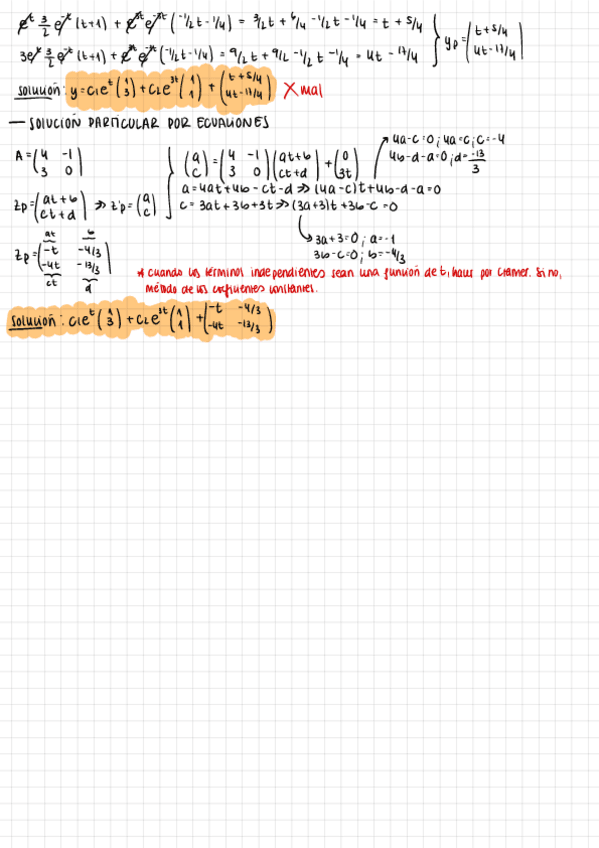 e^t 3/2 e^-t (t+1) + e^3t e^-3t (-1/2t - 1/4) = 3/2t + 6/4 - 1/2t - 1/4 = t + 5/4
3e^t 3/2 e^-t (t+1) + e^3t e^-3t (-1/2t - 1/4) = 9/2t + 9/2 - 1/2t - 1/4 = 4t - 17/4 } yp = (t + 5/4 4t - 17/4)
solución: y = c1e^t (1 3) + c2e^3t (1 1) + (t + 5/4 4t - 17/4) X mal
— SOLUCIÓN PARTICULAR POR ECUACIONES
A = (4 -1 3 0)
zp = (at+b ct+d) => z'p = (a c)
(a c) = (4 -1 3 0) (at+b ct+d) + (0 3t)
a = 4at + 4b - ct - d => (4a-c)t + 4b - d - a = 0
c = 3at + 3b + 3t => (3a+3)t + 3b - c = 0
4a - c = 0; 4a = c; c = -4
4b - d - a = 0; d = -13/3
3a + 3 = 0; a = -1
3b - c = 0; b = -4/3
at b
zp = (-t -4/3 -4t -13/3)
ct d
* cuando los términos independientes sean una función de t, hacer por Cramer. Si no,
método de los coeficientes constantes.
solución: c1e^t (1 3) + c2e^3t (1 1) + (-t -4/3 -4t -13/3)